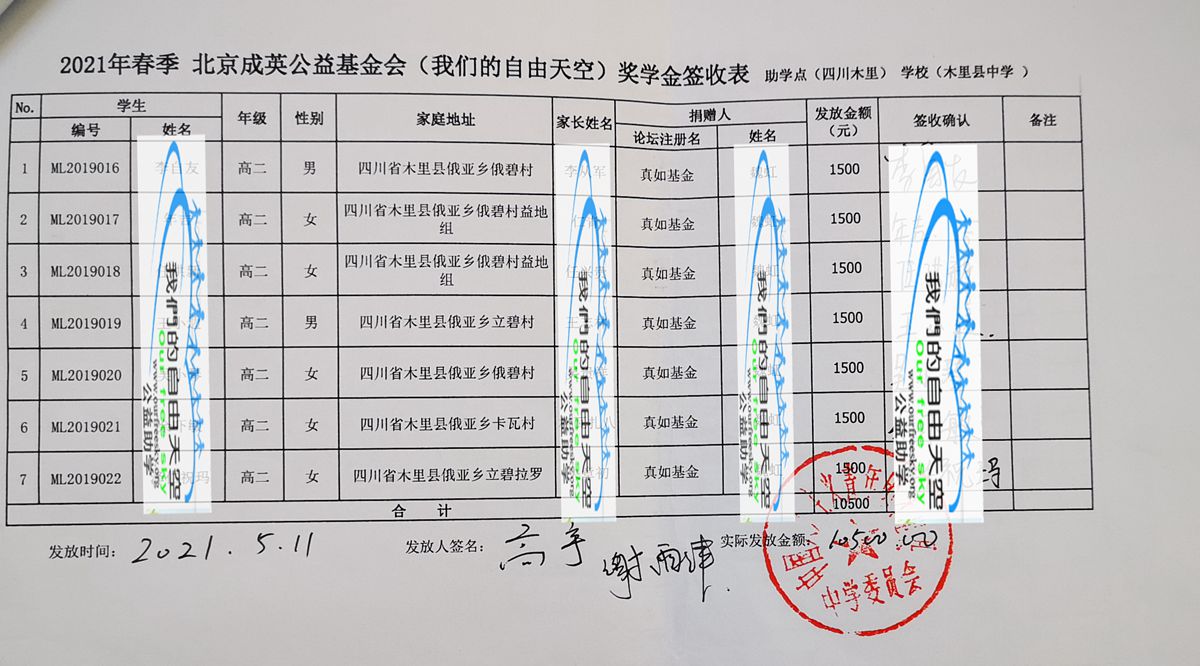 2021年春季 北京成英公益基金会（我们的自由天空）奖学金签收表 助学点（四川木里） 学校（木里县中学 ）
No. 学生 年级 性别 家庭地址 家长姓名 捐赠人 发放金额（元） 签收确认 备注
编号 姓名 论坛注册名 姓名
1 ML2019016 高二 男 四川省木里县俄亚乡俄碧村 真如基金 1500
2 ML2019017 高二 女 四川省木里县俄亚乡俄碧村益地组 真如基金 1500
3 ML2019018 高二 女 四川省木里县俄亚乡俄碧村益地组 真如基金 1500
4 ML2019019 高二 男 四川省木里县俄亚乡立碧村 真如基金 1500
5 ML2019020 高二 女 四川省木里县俄亚乡俄碧村 真如基金 1500
6 ML2019021 高二 女 四川省木里县俄亚乡卡瓦村 真如基金 1500
7 ML2019022 高二 女 四川省木里县俄亚乡立碧拉罗 真如基金 1500
合 计 10500
我們的自由天空
Our free sky
公益助学
我們的自由天空
Our free sky
公益助学
我們的自由天空
Our free sky
公益助学
我們的自由天空
Our free sky
公益助学
发放时间： 2021.5.11 发放人签名： 实际发放金额：
中学委員会